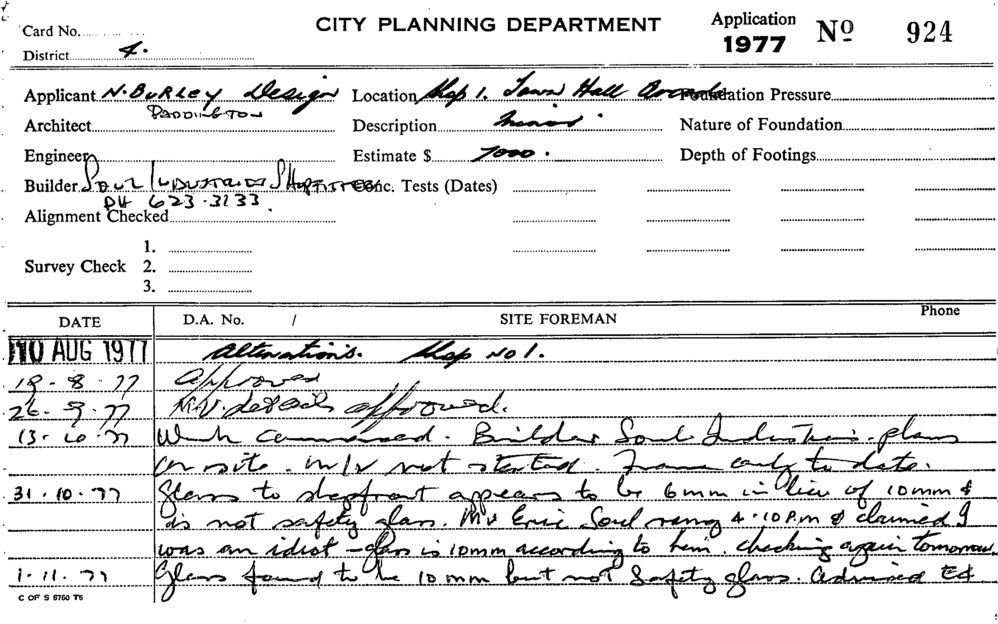 Card No. CITY PLANNING DEPARTMENT Application 1977 No 924
District 4.
Applicant N. BURLEY Design Location Shop 1. Town Hall Arcade Foundation Pressure
PADDINGTON
Architect Description Minor. Nature of Foundation
Engineer Estimate $ 7000. Depth of Footings
Builder SOUL INDUSTRIES SHOPFITTERS Conc. Tests (Dates)
PH 623-3133.
Alignment Checked
1.
Survey Check 2.
3.
DATE D.A. No. / SITE FOREMAN Phone
10 AUG 1977 Alterations. Shop No 1.
18-8-77 Approved
26.9.77 M.V. details approved.
13.10.77 Work commenced. Builder Soul Industries. plans
on site. M/V not started. Frame only to date.
31.10.77 Glass to shopfront appears to be 6mm in lieu of 10mm &
is not safety glass. Mr Eric Soul rang 4.10PM & claimed I
was an idiot - glass is 10mm according to him. Checking again tomorrow
1.11.77 Glass found to be 10mm but not Safety glass. Advised
C OF S 6760 T6